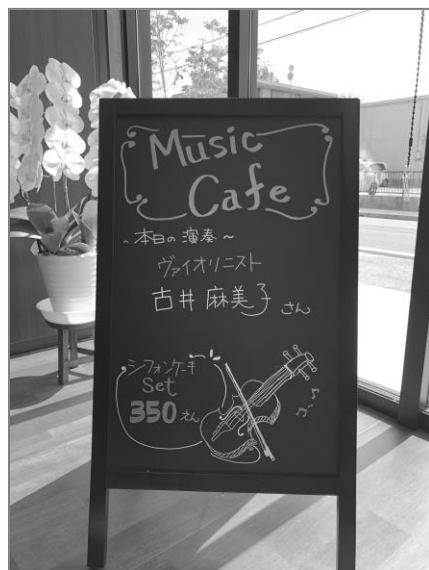 Music
Cafe
~本日の演奏~
ヴァイオリニスト
古井麻美子さん
シフォンケーキ
Set
350えん